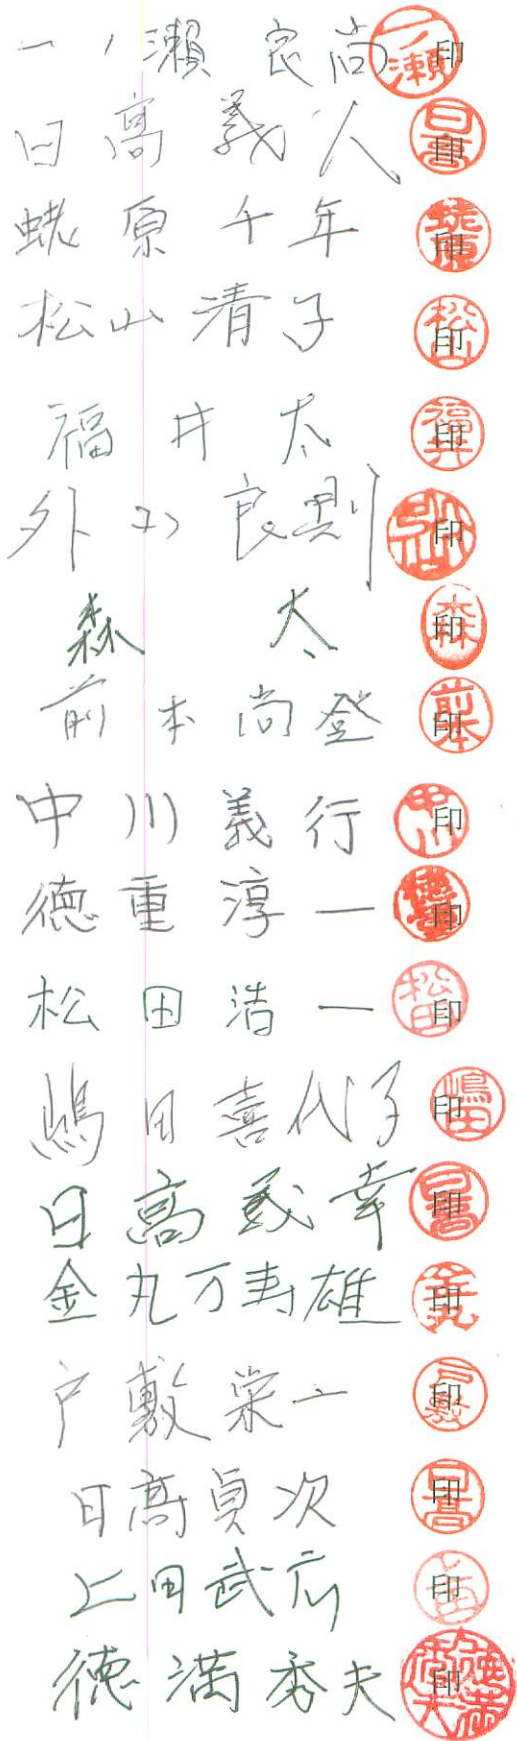 一ノ瀬 良尚 印
日髙義人 印
蛯原千年 印
松山清子 印
福井太 印
外山良則 印
森太 印
前本尚登 印
中川義行 印
徳重淳一 印
松田浩一 印
嶋田喜代子 印
日高義幸 印
金丸万寿雄 印
戸敷栄一 印
日髙貞次 印
上田武広 印
徳満秀夫 印